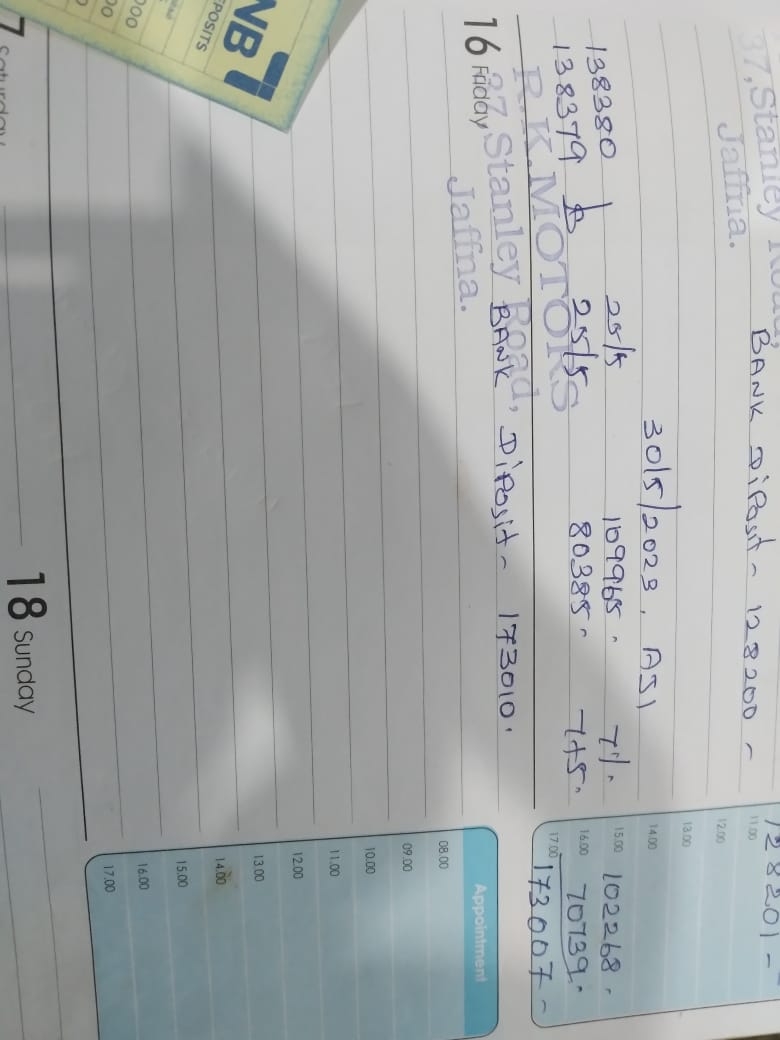 37,Stanley Road,
128201 -
BANK DiPosit - 128200 -
11.00
Jaffna.
12.00
13.00
30/5/2023, ASI
14.00
138380 25/5 109965. 7%.
15.00 102268.
138379 & 25/5 80385. 7+5.
16.00 70739.
R.K.MOTORS
17.00 173007 -
16 Friday
37,Stanley Road,
BANK DiPosit - 173010.
Appointment
Jaffna.
08.00
09.00
10.00
11.00
12.00
13.00
14.00
15.00
16.00
17.00
NB
POSITS
18 Sunday
Saturday